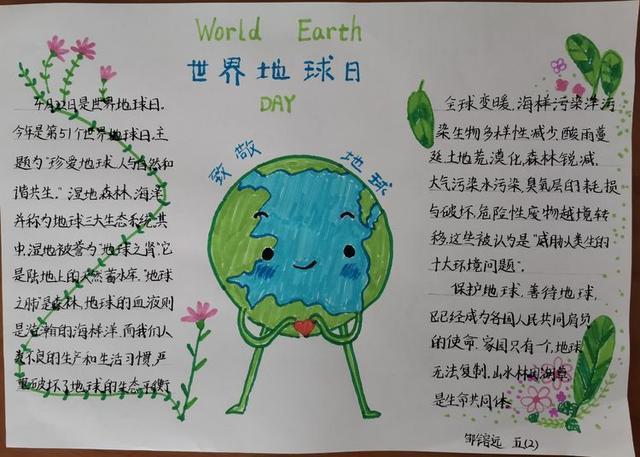 World Earth
世界地球日
DAY
致敬 地球
4月22日是世界地球日.
今年是第51个世界地球日,主
题为"珍爱地球,人与自然和
谐共生."湿地森林、海洋
并称为地球三大生态系统,其
中,湿地被誉为"地球之肾",它
是陆地上的天然蓄水库."地球
之肺"是森林,地球的血液则
是浩瀚的海林洋.而我们人
类不良的生产和生活习惯,严
重破坏了地球的生态平衡
全球变暖、海样污染洋污
染生物多样性减少,酸雨蔓
延土地荒漠化森林锐减.
大气污染水污染、臭氧层的耗损
与破坏、危险性废物越境转
移,这些被认为是"威胁人类生的
十大环境问题".
保护地球,善待地球,
已已经成为各国人民共同肩负
的使命.家园只有一个,地球
无法复制.山水林田湖草
是生命共同体.
邹 远 五(2)